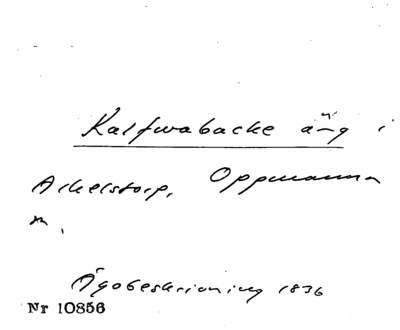 Kalfwabacke äng i
Arkelstorp, Oppmanna
sn.
Ägobeskrivning 1836
Nr 10856